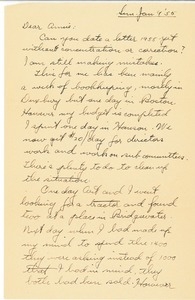 Sun Jan 9 '55
Dear Annie:
Can you date a letter 1955 yet
without concentration or correction?
I am still making mistakes.
This for me has been mainly
a week of bookkeeping, mostly in
Duxbury but one day in Boston.
However my budget is completed
I spent one day in Hanson. We
now get $10 day for directors
work and work on sub committees.
There's plenty to do to clean up
the situation.
One day Carl and I went
looking for a and found
two at a place in Bridgewater.
Next day when I had made up
my mind to spend the 1400
they were asking instead of 1000
that I had in mind, they
both had been sold. However